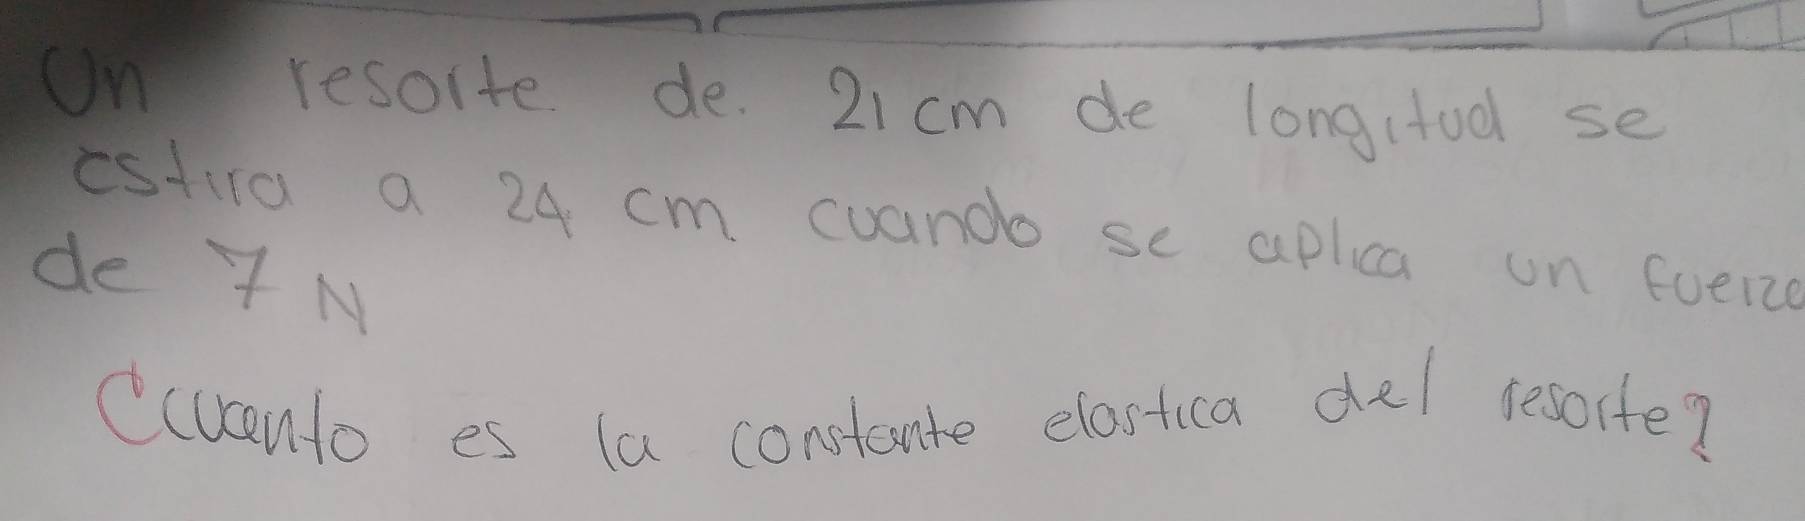 Un resorte de. 21 cm de longitud se
estira a 24 cm cuando se aplica un fuerza
de 7 N
¿cuanto es la constante elastica del resorte?